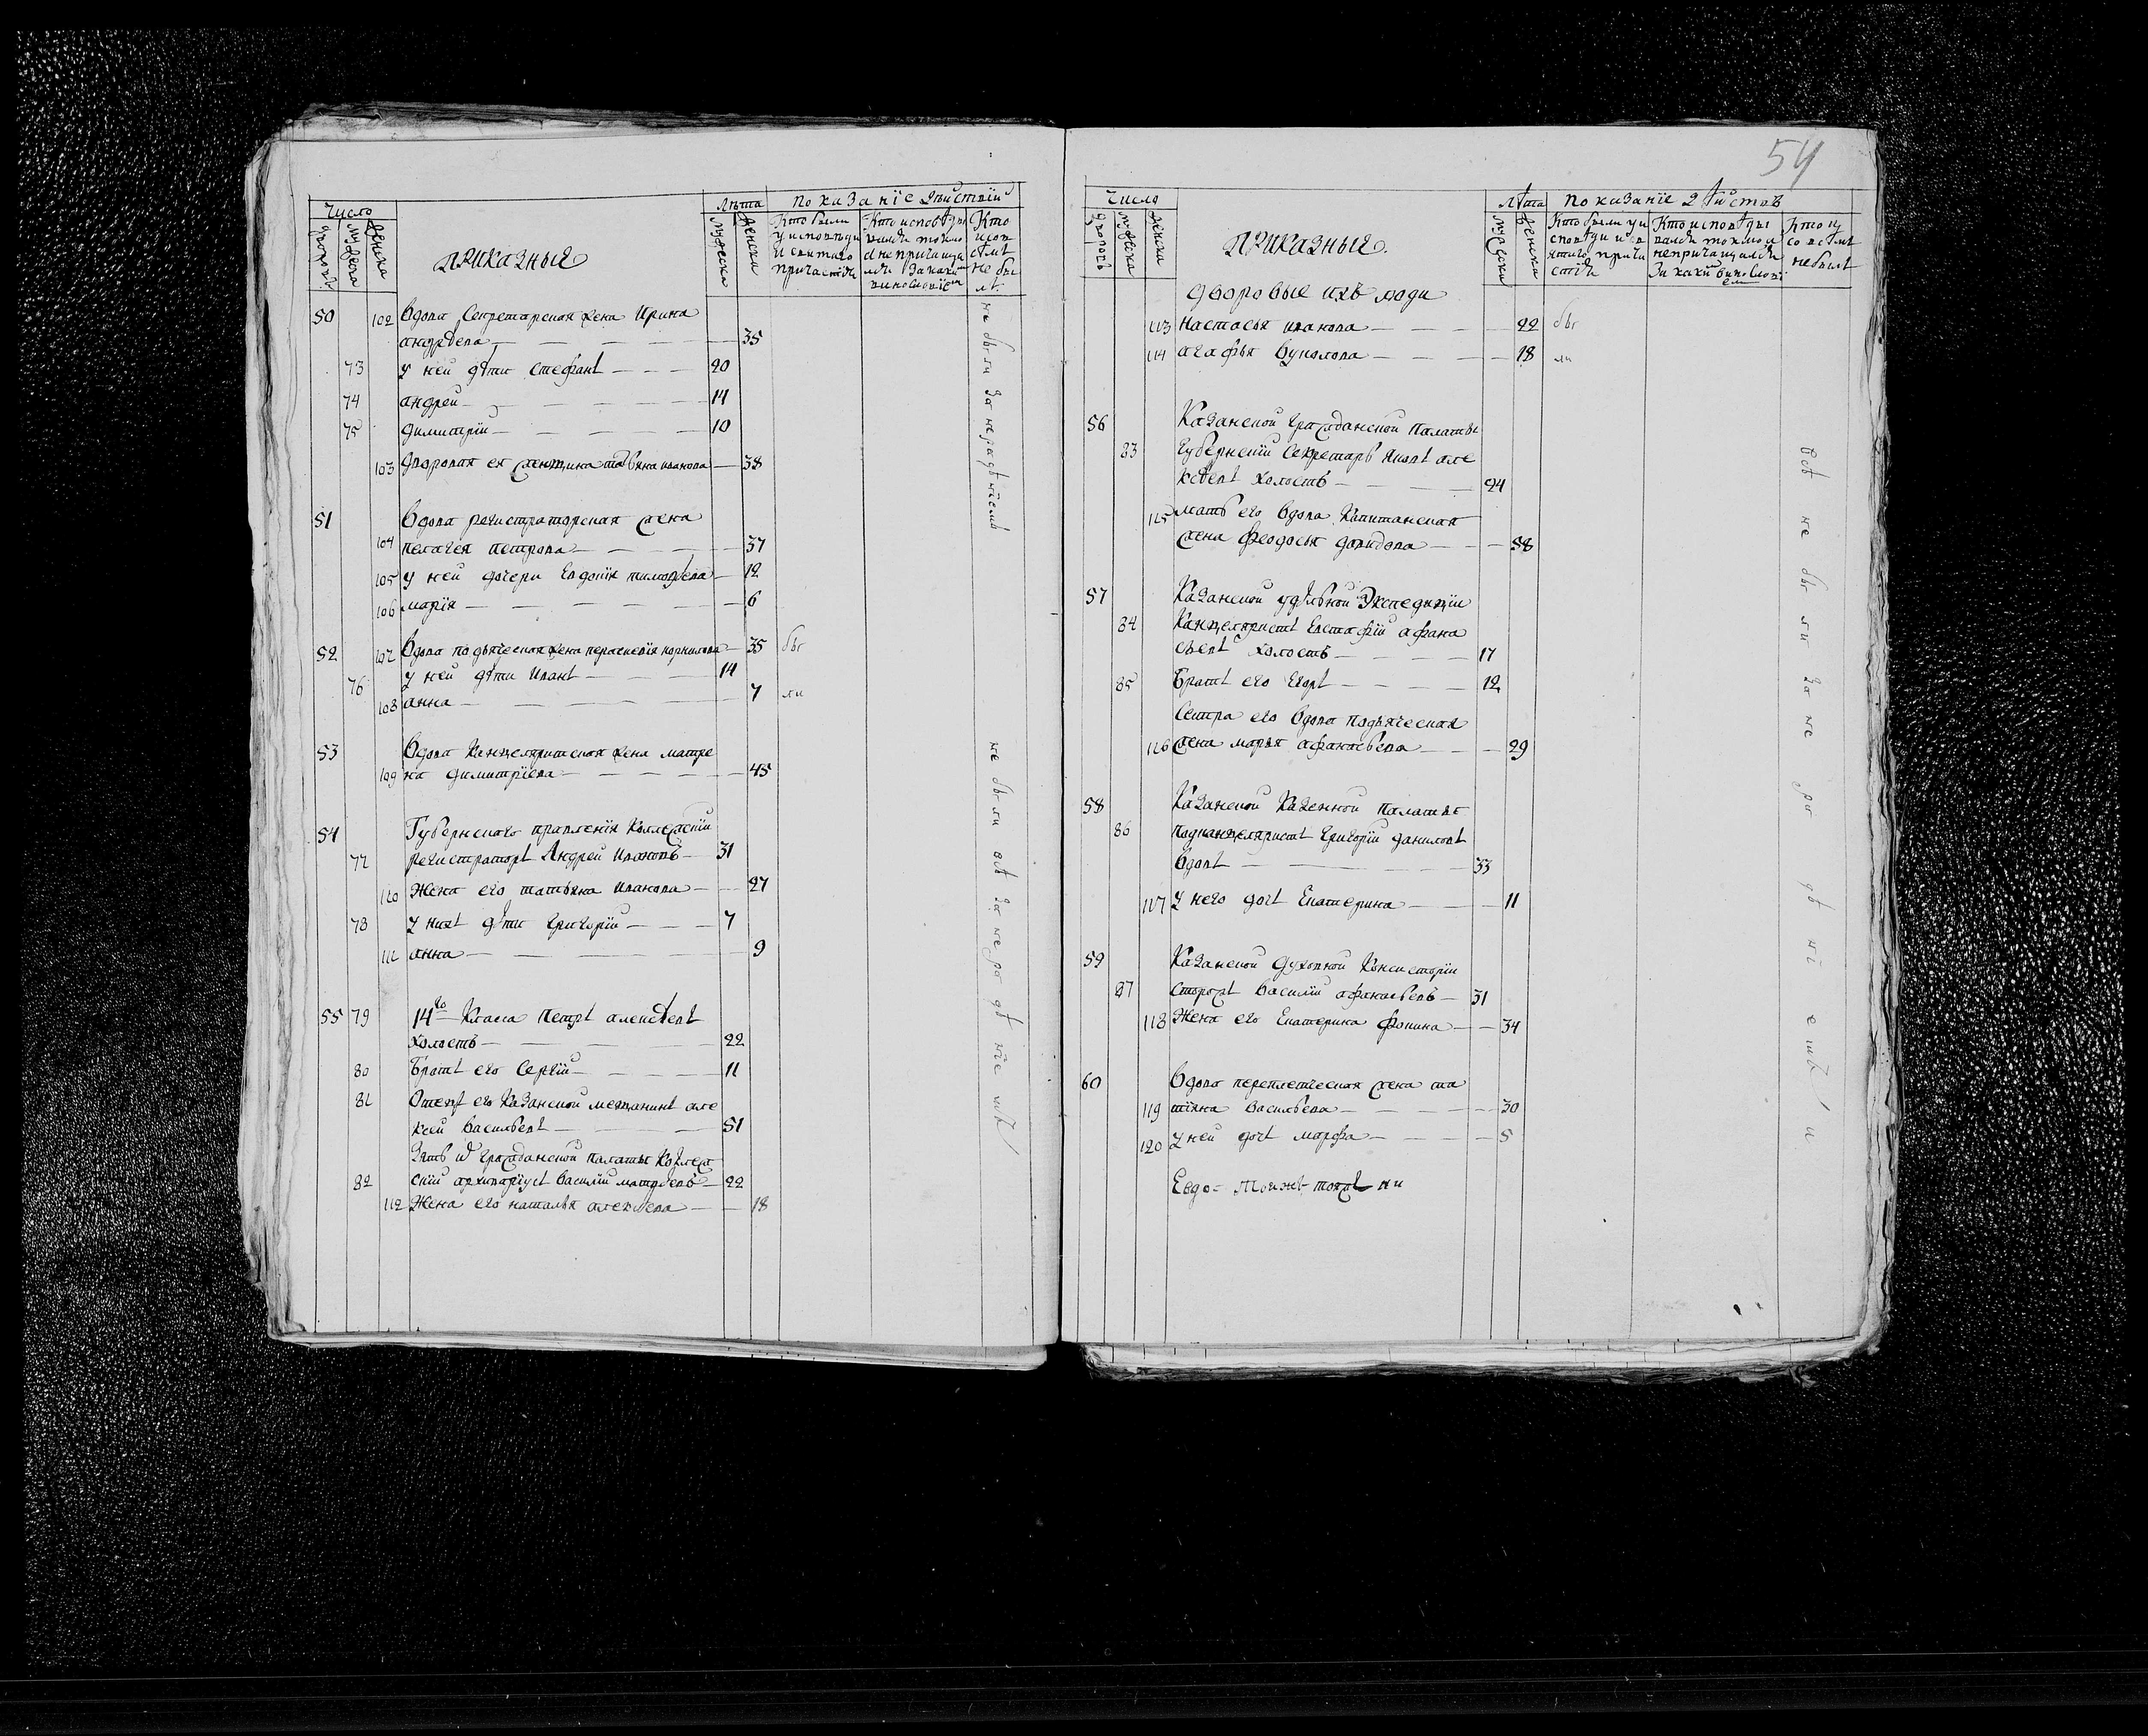 54
Число
Лѣта
показанїе дѣйствїй
дворовъ
мужеска
женска
ПРИКАЗНЫЕ
мужеска
женска
Кто были
у исповѣди
и святаго
причастїя
Кто исповѣды
вался токмо
а не причаща
лся за каким
винословїем
Кто
исов
сѣмъ
не бы
лъ
50 102 Вдова Секретарская жена Ирина
андреева 35
73 у ней дѣти Стефанъ 20
74 андрей 14
75 димитрїй 10
103 дворовая ея женщина татьяна иванова 38
не были за нерадѣнїемъ
51 Вдова регистраторская жена
104 пелагея петрова 37
105 у ней дочери Евдокїя тимофеева 12
106 марїя 6
52 107 Вдова подьяческая жена парасковїя корнилова 35 бы
76 у ней дѣти Иванъ 14
108 анна 7 ли
53 Вдова Канцеляристская жена матре
109 на димитрїева 45
54 Губернскаго правленїя Коллежскїй
77 регистраторъ Андрей Ивановъ 31
110 Жена его татьяна Иванова 27
78 у нихъ дѣти григорїй 7
111 анна 9
не были всѣ за нерадѣнїемъ
55 79 14го Класса Петръ алексѣевъ
холостъ 22
80 Братъ его Сергїй 11
81 Отецъ его Казанской мещанинъ але
ксей Васильевъ 51
Зять ихъ гражданской палаты Коллеж
82 скїй архиварїусъ Василїй матвеевъ 22
112 Жена его наталья алексѣева 18
Число
Лѣта
показанїе дѣйствъ
дворовъ
мужеска
женска
ПРИКАЗНЫЕ.
мужеска
женска
Кто были у и
сповѣди и св
ятаго прича
стїя
Кто исповѣды
вался токмо и
не причащался
за каким винословї
ем
Кто у
совсѣмъ
не былъ
дворовые ихъ люди
113 Настасья иванова 22 бы
114 агафья вуколова 18 ли
56 Казанской гражданской палаты
83 Губернскїй Секретарь Яковъ але
ксѣевъ холостъ 24
115 мать его вдова Капитанская
жена феодосья давидова 58
57 Казанской удѣльной Экспедицїи
84 Канцеляристъ Евстафїй афана
сьевъ холостъ 17
85 Братъ его Егоръ 12
Сестра его вдова подьяческая
116 жена марья афанасьева 29
58 Казанской Казенной палаты
86 подканцеляристъ григорїй даниловъ
вдовъ 33
117 у него дочь Екатерина 11
59 Казанской Духовной Консисторїи
87 Сторожъ василїй афанасьевъ 31
118 Жена его Екатерина фокина 34
60 Вдова переплетческая жена та
119 тїяна васильева 30
120 у ней дочь марфа 5
всѣ не были за нерадѣнїемъ